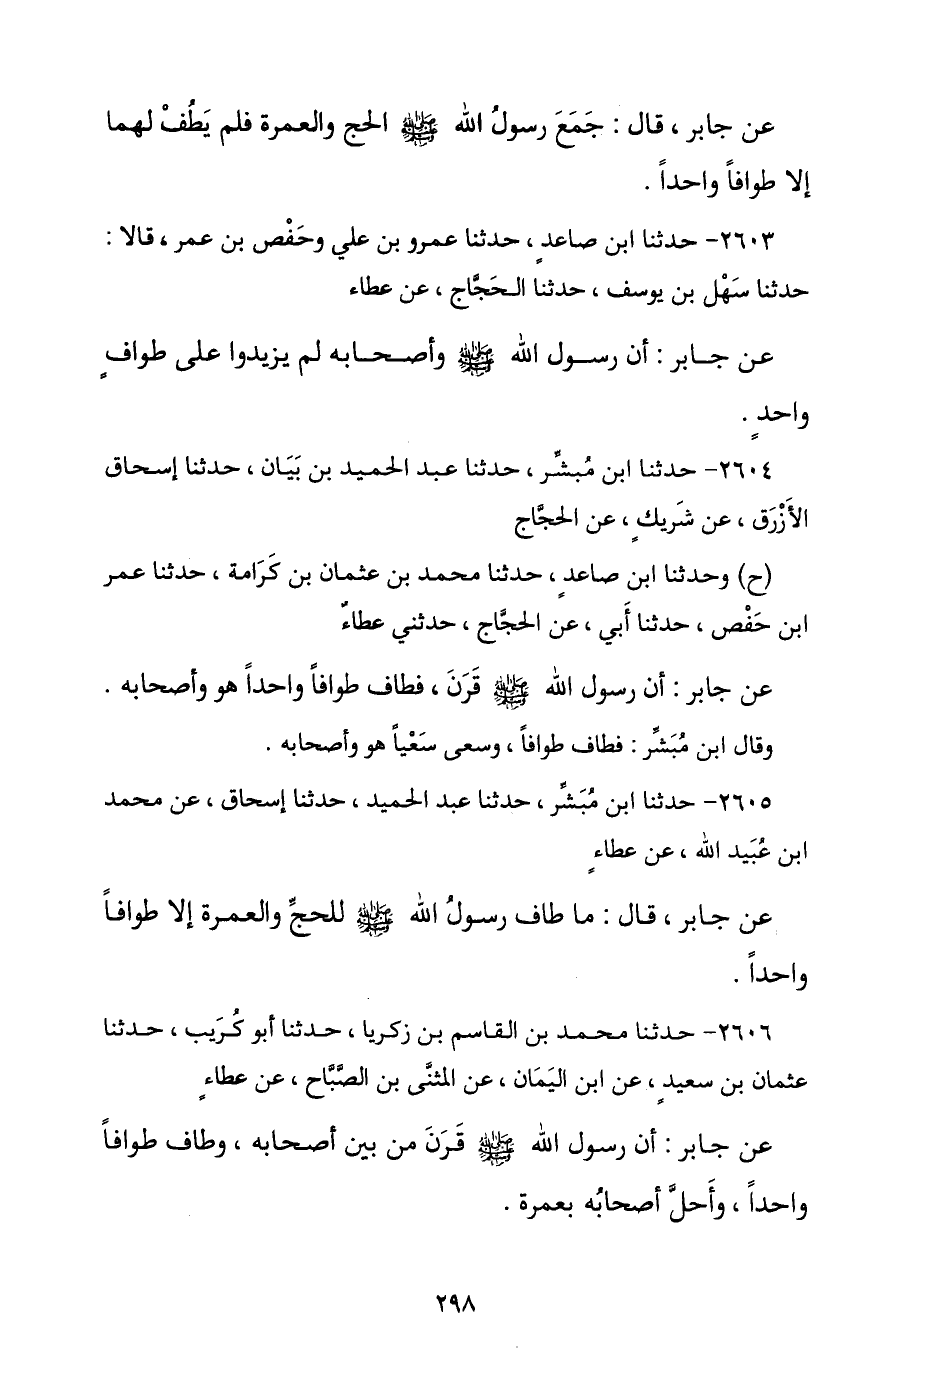 عن جابر ، قال : جَمَعَ رسولُ الله ﷺ الحج والعمرة فلم يَطُفْ لهما
إلا طوافاً واحداً .
٢٦٠٣- حدثنا ابن صاعدٍ ، حدثنا عمرو بن علي وحَفْص بن عمر ، قالا :
حدثنا سَهْل بن يوسف ، حدثنا الحَجَّاج ، عن عطاء
عن جابر : أن رسول الله ﷺ وأصحابه لم يزيدوا على طوافٍ
واحدٍ .
٢٦٠٤- حدثنا ابن مُبشِّر ، حدثنا عبد الحميد بن بَيَان ، حدثنا إسحاق
الأَزْرَق ، عن شَريكٍ ، عن الحجَّاج
(ح) وحدثنا ابن صاعدٍ ، حدثنا محمد بن عثمان بن كَرَامة ، حدثنا عمر
ابن حَفْص ، حدثنا أَبي ، عن الحجَّاج ، حدثني عطاءٌ
عن جابر : أن رسول الله ﷺ قَرَنَ ، فطاف طوافاً واحداً هو وأصحابه .
وقال ابن مُبَشِّر : فطاف طوافاً ، وسعى سَعْياً هو وأصحابه .
٢٦٠٥- حدثنا ابن مُبَشِّر ، حدثنا عبد الحميد ، حدثنا إسحاق ، عن محمد
ابن عُبَيد الله ، عن عطاءٍ
عن جابر ، قال : ما طاف رسولُ الله ﷺ للحجِّ والعمرة إلا طوافاً
واحداً .
٢٦٠٦- حدثنا محمد بن القاسم بن زكريا ، حدثنا أبو كُرَيب ، حدثنا
عثمان بن سعيدٍ ، عن ابن اليَمَان ، عن المثنَّى بن الصَّبَّاح ، عن عطاءٍ
عن جابر : أن رسول الله ﷺ قَرَنَ من بين أصحابه ، وطاف طوافاً
واحداً ، وأَحلَّ أصحابُه بعمرة .
٢٩٨